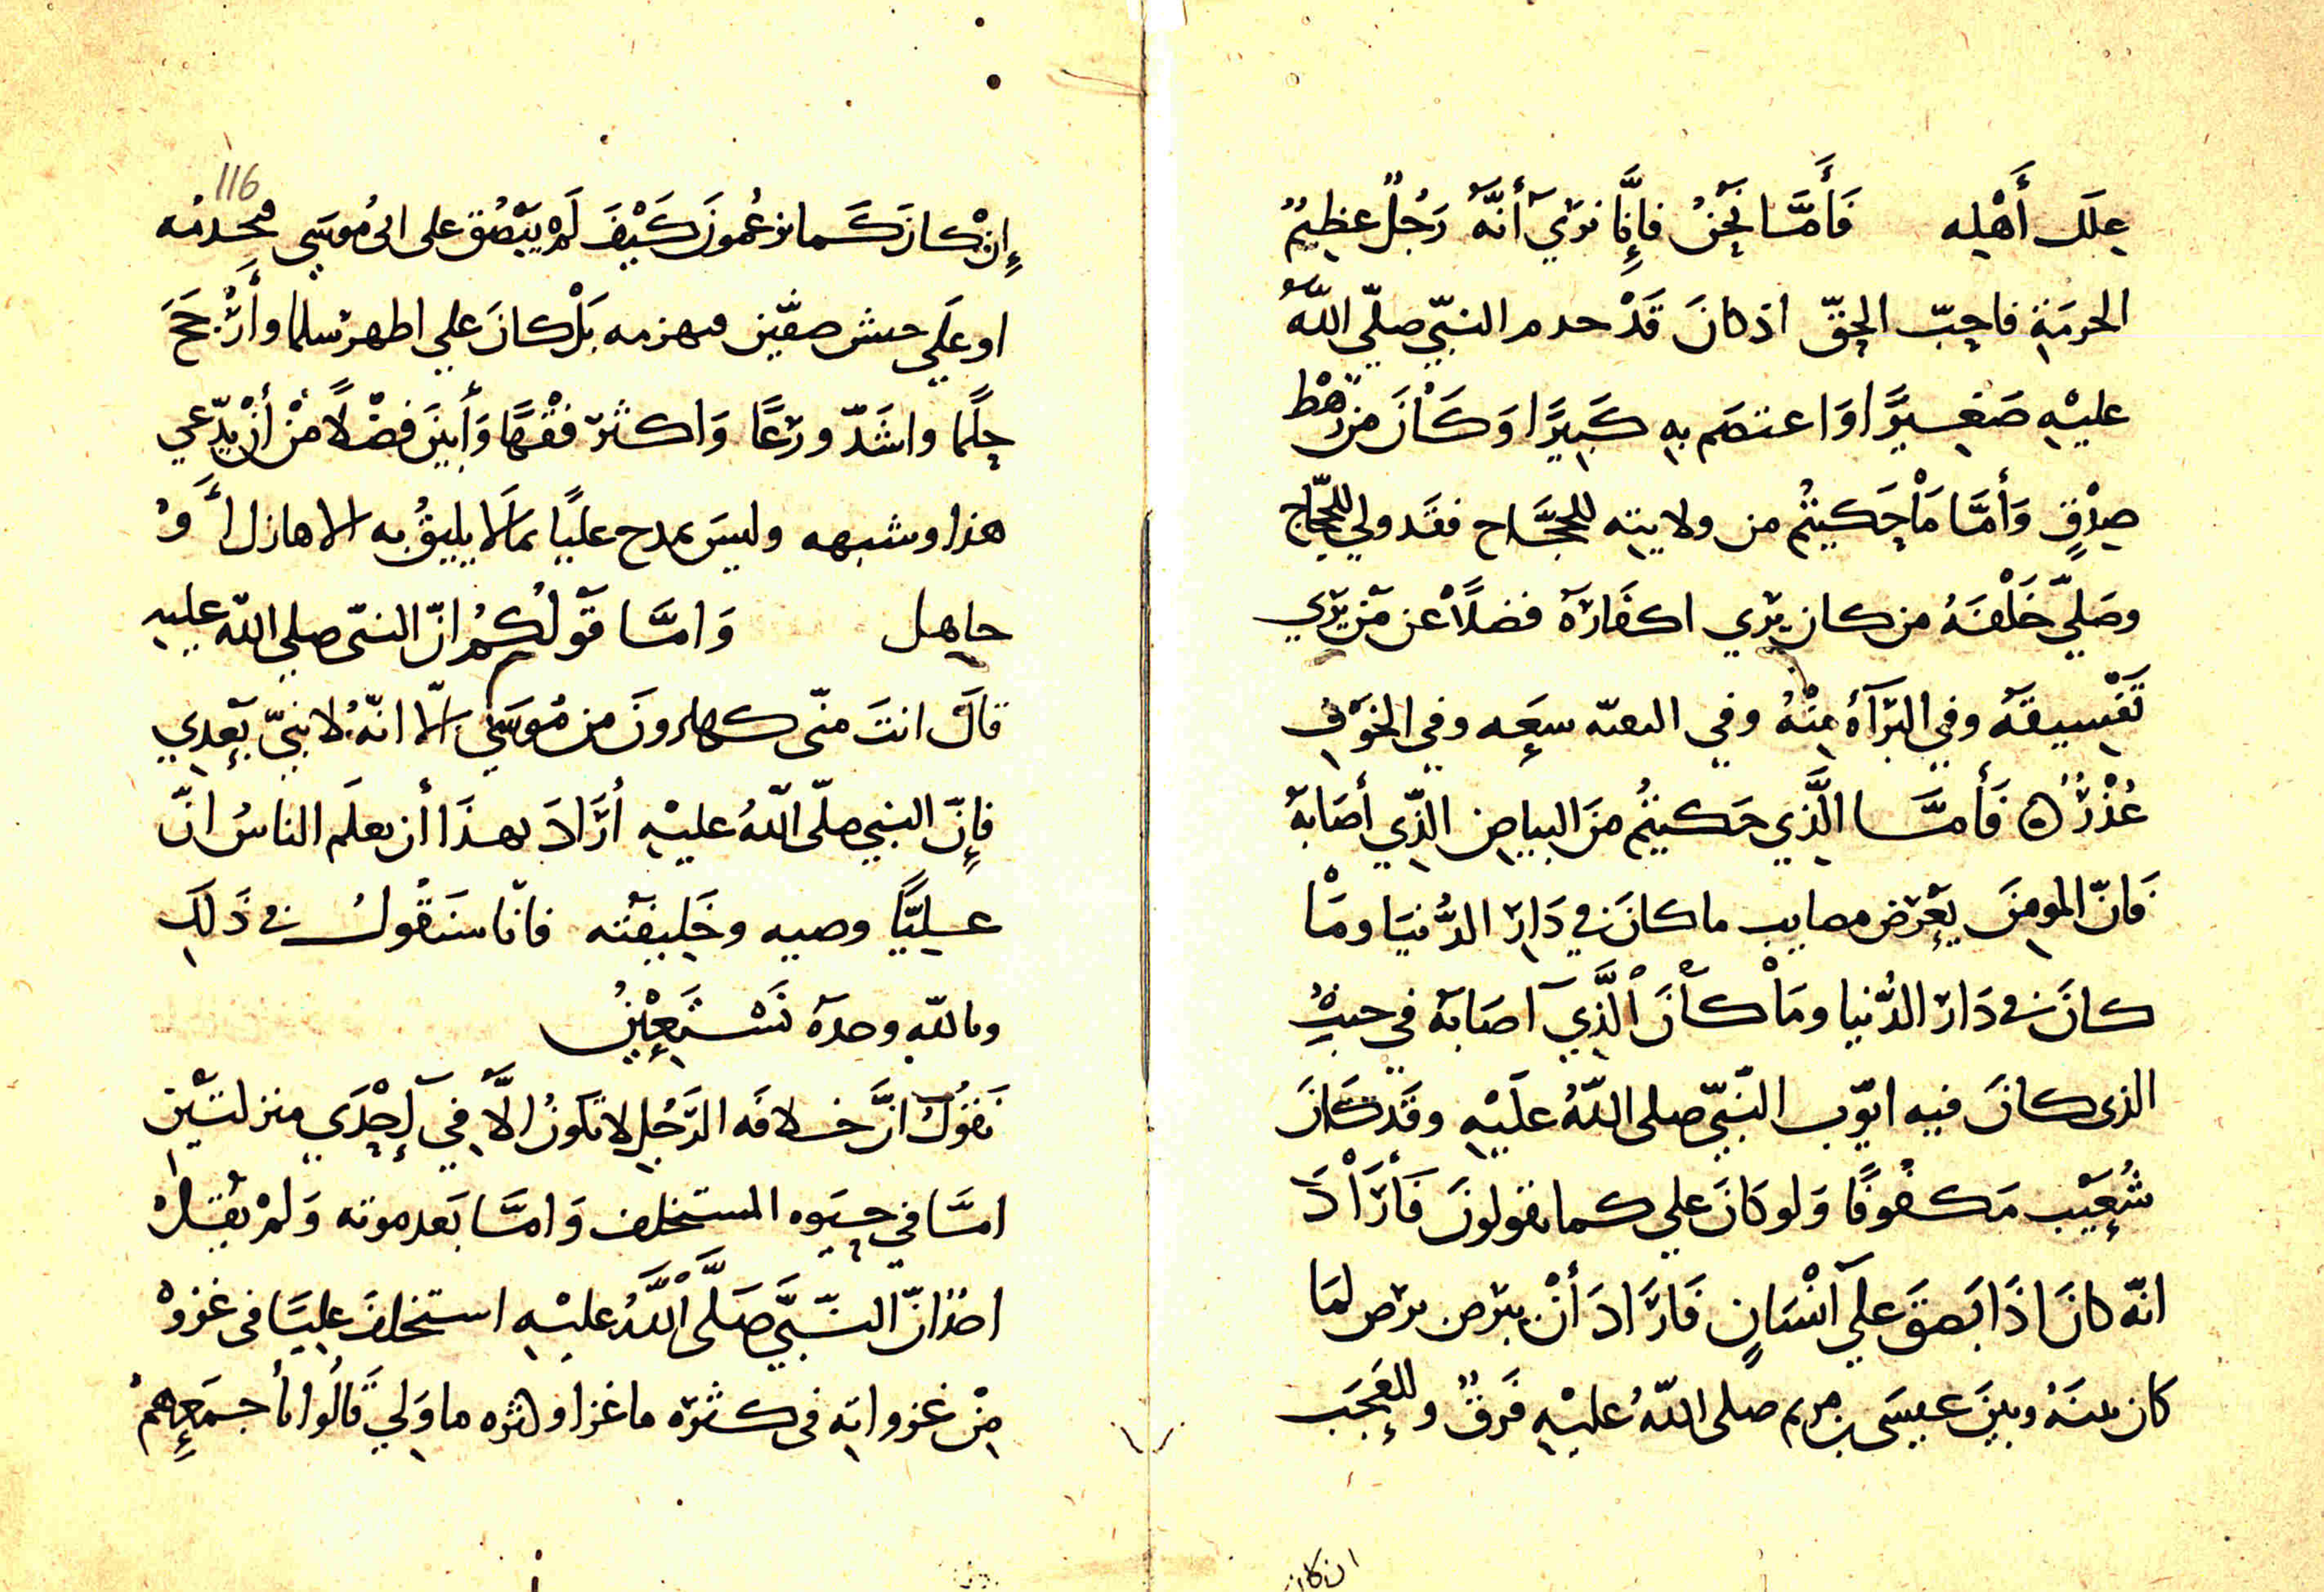 علل أَهْلِه فَأَمَّا نَحْنُ فإِنَّا نَرَي أَنَّهُ رَجُلٌ عظِيمُ
الحرمَةِ فاحبّ الحقّ اذ كانَ قَدْ خدم النبيّ صلّي اللهُ
عليْهِ صَغِيرًا وَاعتصَم بِهِ كَبِيرًا وَكَانَ من رَهْط
صِدْقٍ وَأَمَّا مَا حَكيتُم من ولايته للحجَّاج فقَد ولي للحجّاج
وصَلّي خَلْفَهُ من كان يَري اكفَارَهُ فضلًا عن مَن يَرَي
تَفْسِيقَهُ وفي البَرَآءَةِ مِنْهُ وفي التقيّة سعَه وفي الخوْفِ
عُذْرٌ ه فَأَمَّا الَّذِي حَكيتُم مِنَ البياضِ الذِّي أصَابهُ
فَانّ المومِنَ بعَرَض مصايب ما كانَ في دَارِ الدُّنيَا ومَا
كانَ في دَار الدُّنيا ومَا كانَ الَّذِيَ اصَابهُ في جنبِ
الذى كانَ فيه ايّوب النَّبيّ صلى اللهُ علَيْهِ وقَد كَانَ
شُعَيْب مَكفُوفًا وَلو كانَ علي كما تقولونَ فَأَرَادَ
انّه كانَ اذَا بَصقَ علي انْسَانٍ فَارَادَ أَنْ يبرَص برَص لمَا
كان بينَهُ وبينَ عيسَى بن مريم صلى اللهُ عليْهِ فَرقٌ وللعَجَب
ان كان
116
إِنْ كانَ كَما تزعُمونَ كَيْفَ لَمْ يَبْصُق على ابى مُوسَي فيجذمُه
او علَي جيش صفّين فيهزمه بَلْ كانَ علي اطهر سلما وأَرْجَحَ
حِلمًا واشَدّ ورَعًا وَاكثر فقْهًا وَأَبينَ فضْلًا مْن أنْ يدّعي
هذا وشبهه وليسَ يمدح عليًا بمالَا يليقُ به الا هازل أَوْ
جاهل وَامَّا قَولُكُمُ انّ النبىّ صلى اللهُ عليهِ
قالَ انتَ منّى كهارونَ من مُوسَي الّا انّه لا نبيّ بَعدِي
فإِنّ النبي صلّى اللهُ عليْهِ أَرَادَ بهذَا أن يعلَم الناسُ انّ
عليًّا وصيه وخَلِيفته فانّا سنَقُول في ذَلِكَ
وبالله وحدَه نَسْتَعِيْنُ
نَقُولُ انَّ خلافَه الرَّجُلِ لا تكونُ الَّا فِي إِحْدَي منزلتَينِ
امَّا في حيَوه المستخلف وَامَّا بَعد موته وَلَمْ يَقُلْ
احدٌ انّ النَّبيَّ صَلَّى اللَّهُ عليْهِ استخلفَ عليًّا في غزوْ
مِنْ غزواتِه في كثرَه ما غزا وكثره ما وَلي قَالُوا بأجمَعِهِمْ